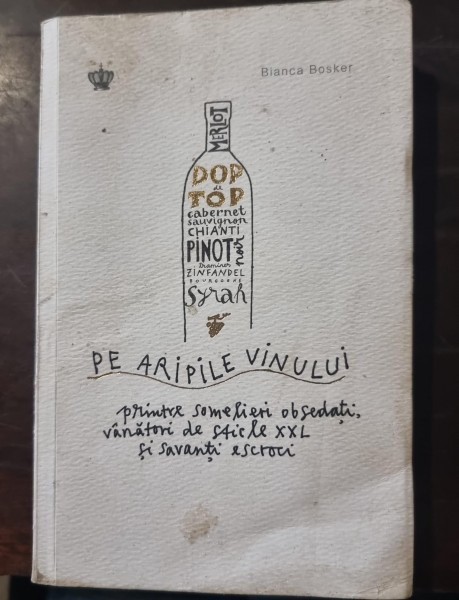 Bianca Bosker
MERLOT
DOP
de
TOP
cabernet
sauvignon
CHIANTI
PINOT noir
Traminer
ZINFANDEL
BOURGOGNE
Syrah
PE ARIPILE VINULUI
printre somelieri obsedați,
vânători de sticle XXL
și savanți escroci